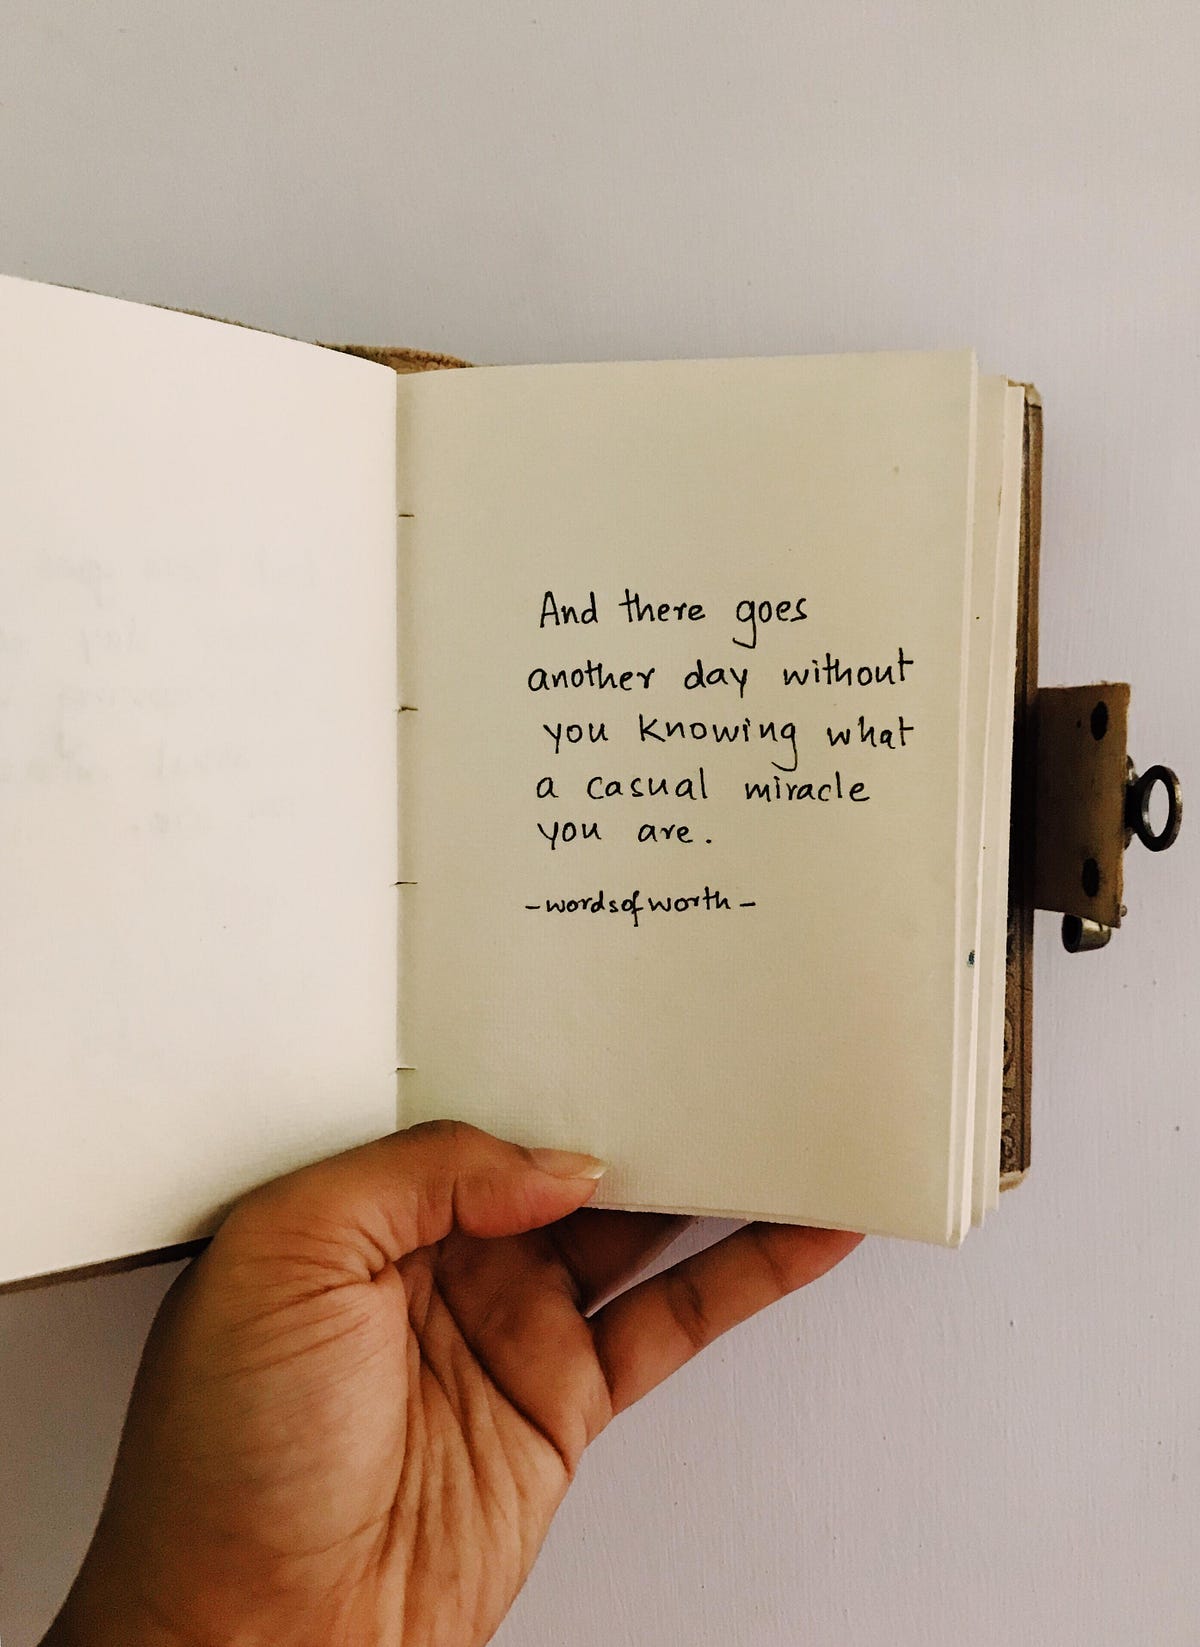 And there goes
another day without
you knowing what
a casual miracle
you are.
-wordsofworth-